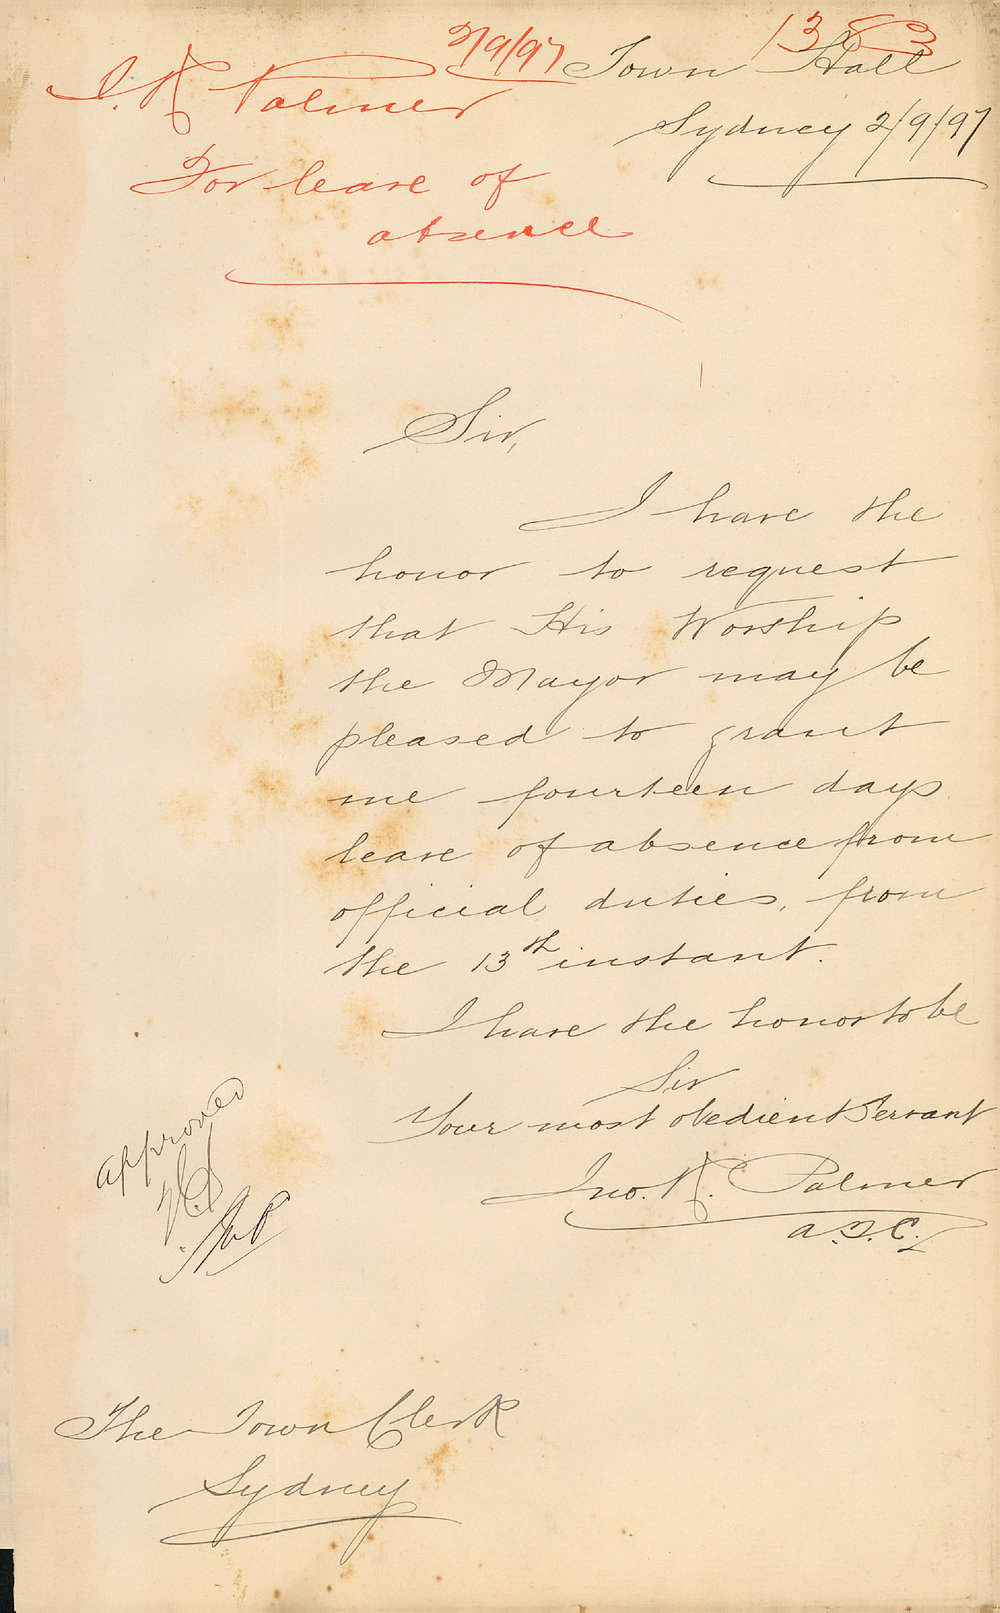 2/9/97 1383
J. R. Palmer
For leave of
absence
Town Hall
Sydney 2/9/97
Sir,
I have the
honor to request
that His Worship
the Mayor may be
pleased to grant
me fourteen days
leave of absence from
official duties, from
the 13th instant.
I have the honor to be
Sir
Your most obedient Servant
Jno. R. Palmer
A.T.C.
approved
The Town Clerk
Sydney